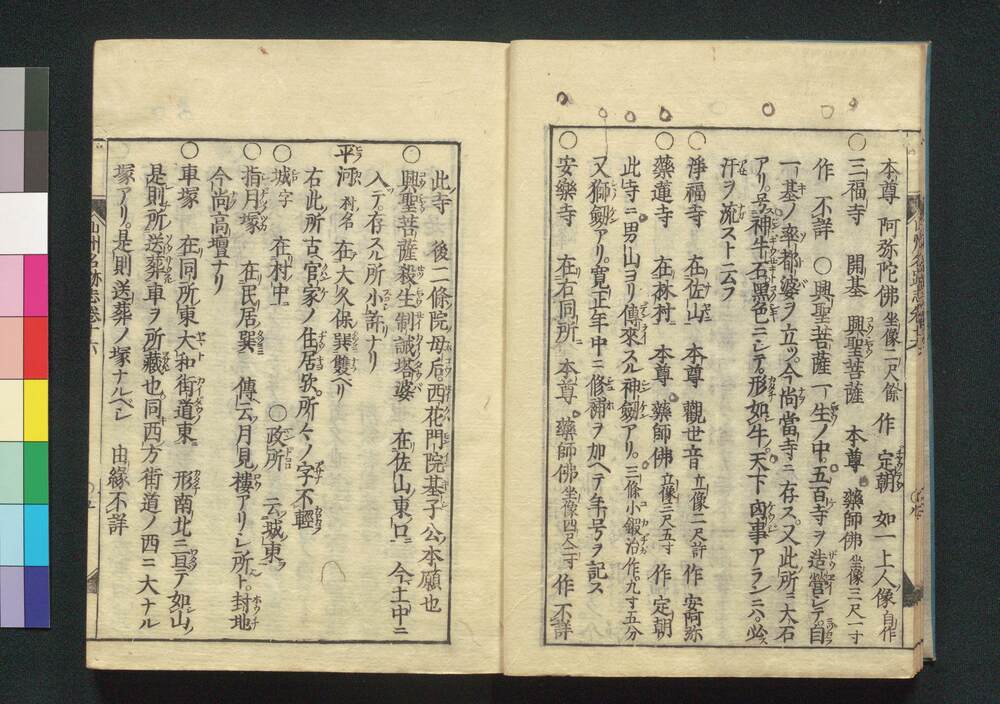 本尊 阿弥陀佛 坐像二尺餘 作 定朝 如一上人像 自作
〇三福寺 開基 興聖菩薩 本尊 藥師佛 坐像三尺一寸
作 不詳 〇興聖菩薩一生ノ中五百寺ヲ造營シテ自
一基ノ率都婆ヲ立ツ今尚當寺ニ存ス又此所ニ大石
アリ号神牛石黒色ニシテ形如牛天下凶事アランニハ必ス
汗ヲ流スト云フ
〇淨福寺 在佐山 本尊 觀世音 立像二尺許 作 安阿弥
〇藥蓮寺 在林村 本尊 藥師佛 立像三尺五寸 作 定朝
此寺ニ男山ヨリ傳來スル神劔アリ三條小鍛治作九寸五分
又獅劔アリ寛正年中ニ修補ヲ加ヘテ年号ヲ記ス
〇安樂寺 在右同所 本尊 藥師佛 坐像四尺二寸 作 不詳
此寺 後二條院母后西花門院基子公本願也
〇興聖菩薩殺生制誡塔婆 在佐山東口 今土中ニ
入テ存スル所小許ナリ
平河 村名 在大久保巽雙ベリ
右此所古官家ノ住居欤所々ノ字不輕
〇城字 在村中 〇政所 云城東
〇指月塚 在民居巽 傳云月見樓アリシ所ト封地
今尚高壇ナリ
〇車塚 在同所東大和街道東 形南北ニ亘テ如山
是則所送葬車ヲ所藏也同西方街道ノ西ニ大ナル
塚アリ是則送葬ノ塚ナルベシ 由緣不詳